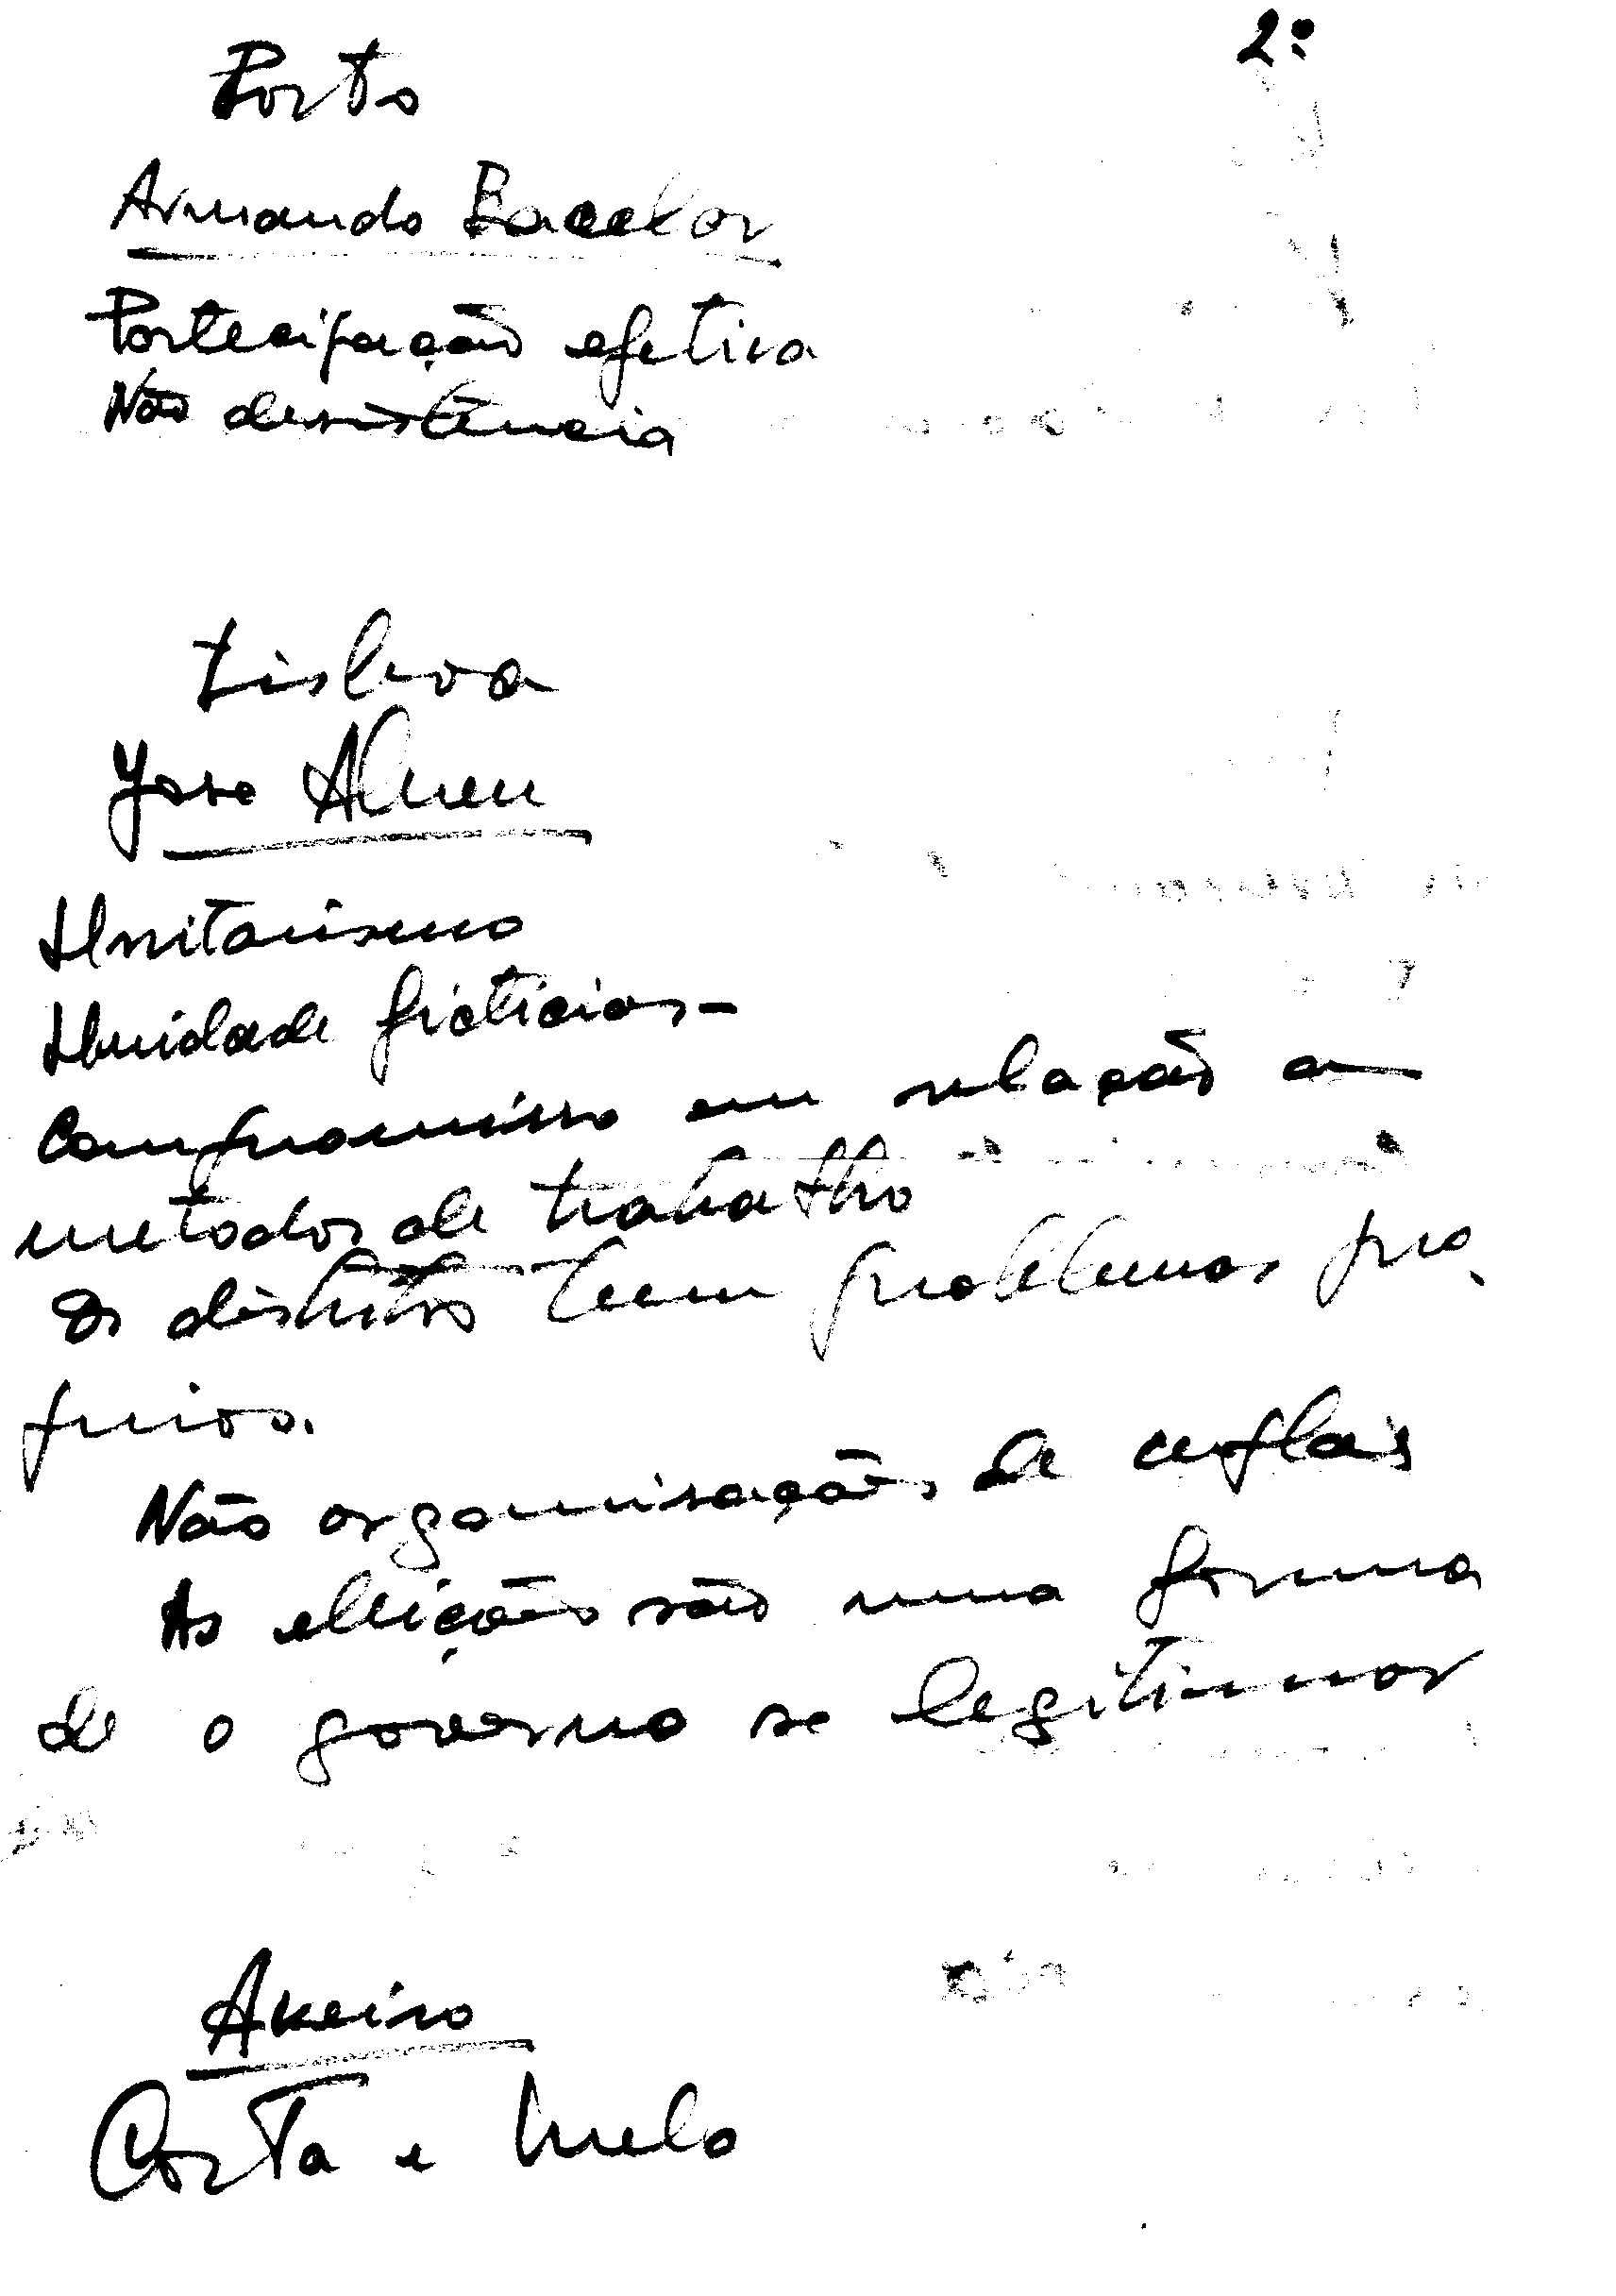 2º
Porto
Armando Bacelar
Partecipação efetiva
Não desistência
Lisboa
Jose Abreu
Unitarismo
Unidade ficticias -
Compromisso em relação a
metodos de trabalho
Os distritos teem problemas pro
prios.
Não organisação de cupulas
As elleições são uma forma
de o governo se legitimar
Aveiro
Costa e Melo